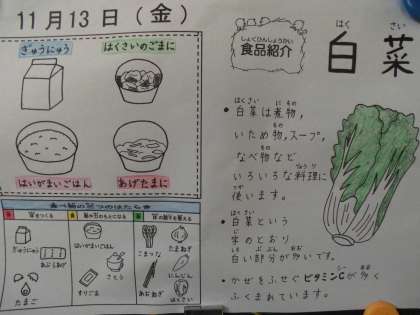 11月13日（金）
ぎゅうにゅう
はくさいのごまに
はいがまいごはん
あげたまに
食べ物の三つのはたらき
赤
体をつくる
黄
熱や力のもとになる
緑
体の調子を整える
ぎゅうにゅう
あぶらあげ
たまご
はいがまいごはん
さとう
すりごま
こまつな
あおねぎ
たまねぎ
にんじん
はくさい
しょくひんしょうかい
食品紹介
はく さい
白菜
はくさい にもの
・白菜は煮物，
いため物，スープ，
なべ物など
いろいろな料理に
使います。
はくさい
・白菜という
字のとおり
白い部分が多いです。
・かぜをふせぐビタミンCが多く
ふくまれています。